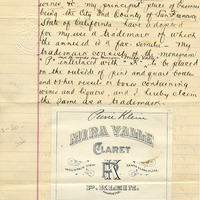 wines, &c. My principal place of business
being the City and County of San Francisco
State of California have adopted
for my use a trademark of which
the annexed is a fac-simile - My
trademark consists of the monogram
"P. interlaced with "K" to be placed
on the outside of pint and quart bottles
and other vessels or boxes containing
wines and liquors, and I hereby claim
the same as a trademark.
Pierre Klein
MIRA VALLE
CLARET
PK
P. KLEIN,